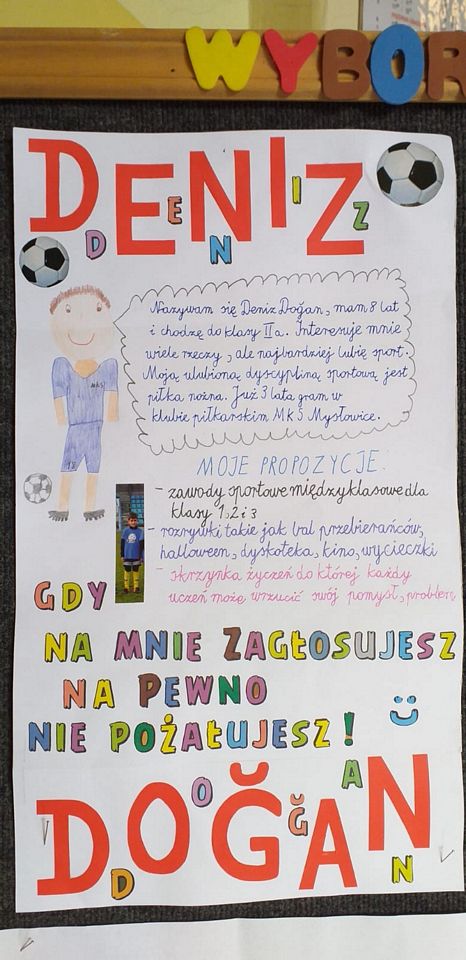 WYBOR
DENIZ
DENIZ
Nazywam się Deniz Doğan, mam 8 lat
i chodzę do klasy IIa. Interesuje mnie
wiele rzeczy, ale najbardziej lubię sport.
Moją ulubioną dyscypliną sportową jest
piłka nożna. Już 3 lata gram w
klubie piłkarskim MKS Mysłowice.
MKS
MOJE PROPOZYCJE:
- zawody sportowe międzyklasowe dla
klasy 1, 2 i 3
- rozrywki takie jak bal przebierańców,
halloween, dyskoteka, kino, wycieczki
- skrzynka życzeń do której każdy
uczeń może wrzucić swój pomysł, problem
GDY
NA MNIE ZAGŁOSUJESZ
NA PEWNO
NIE POŻAŁUJESZ!
DOĞAN
DOĞAN